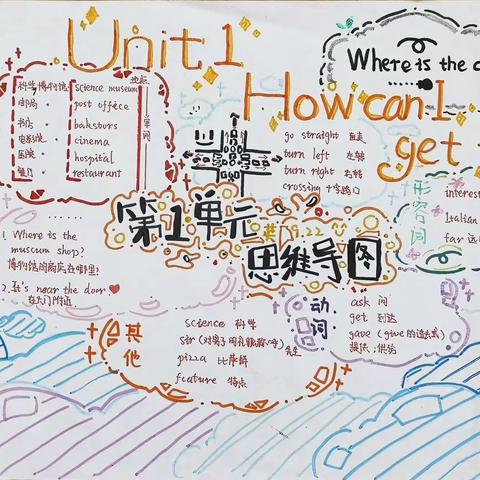 Unit 1
How can I
get
Where is the
地点
单词
科学博物馆 science museum
邮局 post office
书店 bookstors
电影院 cinema
医院 hospital
餐厅 restaurant
go straight 直走
turn left 左转
turn right 右转
crossing 十字路口
形容词
interest
Italian
far 远
第1单元
思维导图
1. Where is the
museum shop?
博物馆的商店在哪里?
2. It's near the door
在大门附近
动词
ask 问
get 到达
gave (give的过去式)
提供;供给
其他
science 科学
sir (对男子的礼貌称呼) 先生
pizza 比萨饼
feature 特点